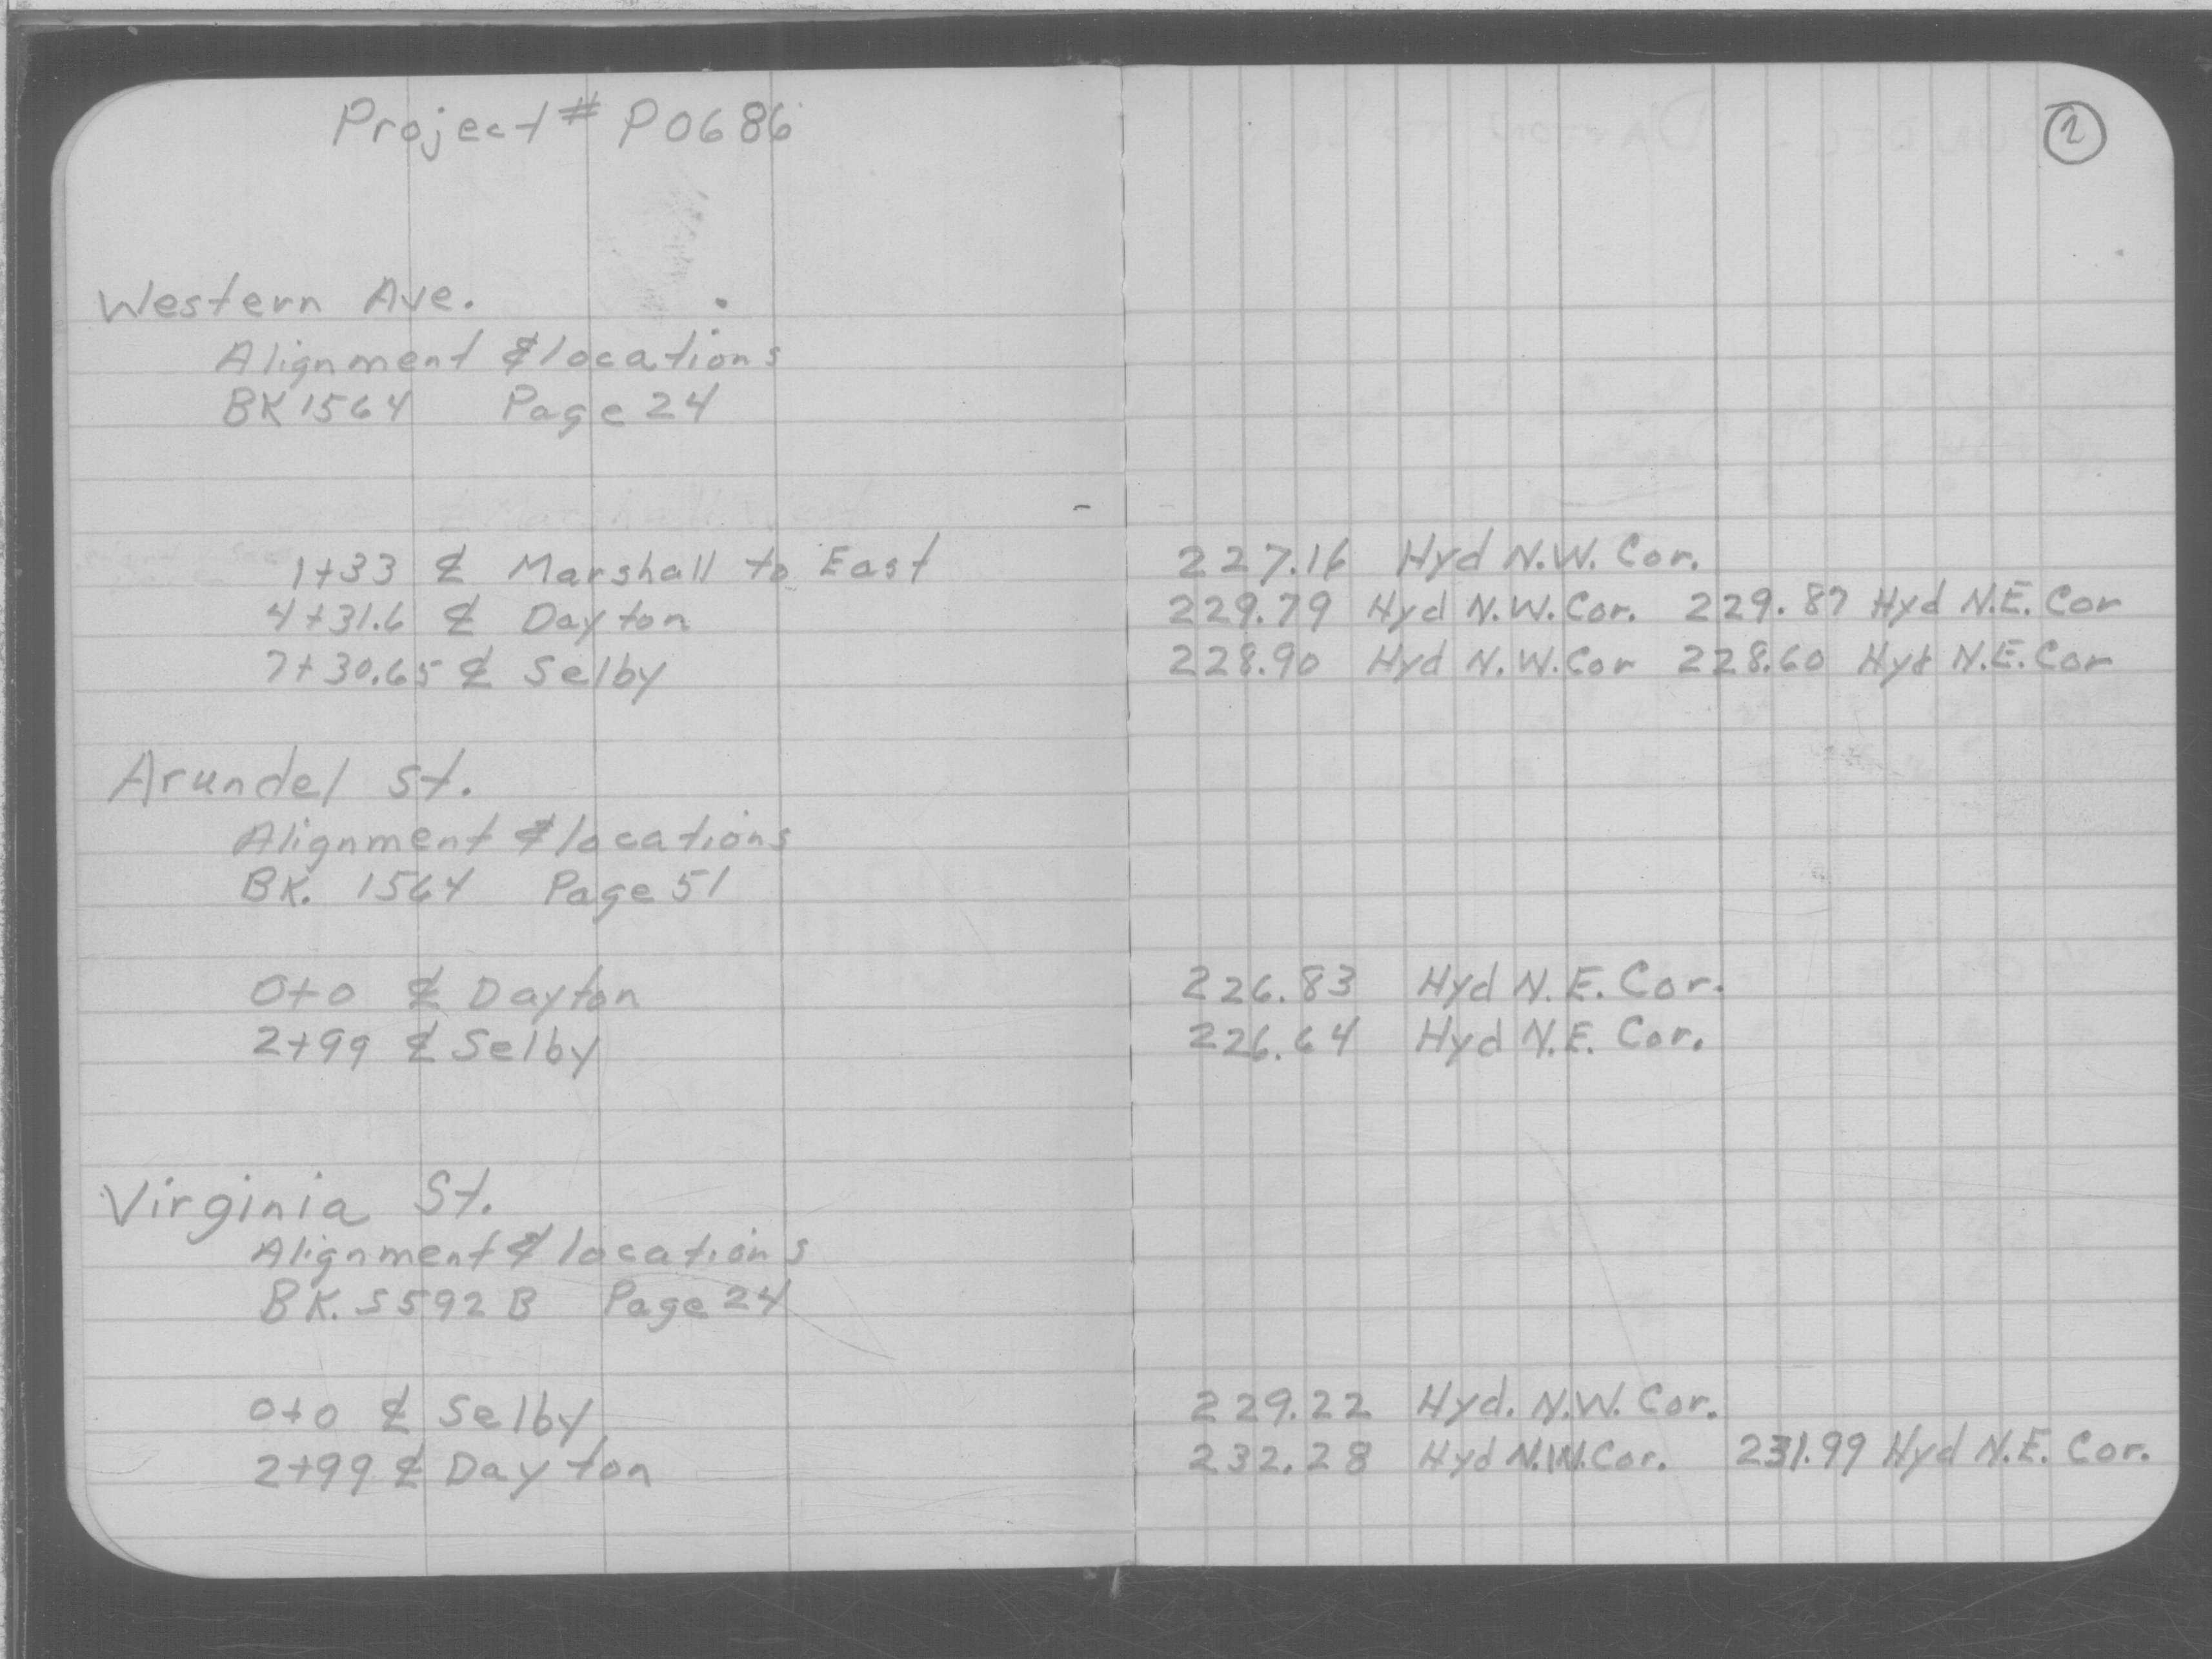 Project # P0686
2
Western Ave.
Alignment & locations
BK 1564 Page 24
1+33 ℄ Marshall to East 227.16 Hyd N.W. Cor.
4+31.6 ℄ Dayton 229.79 Hyd N.W. Cor. 229.87 Hyd N.E. Cor
7+30.65 ℄ Selby 228.90 Hyd N.W. Cor 228.60 Hyd N.E. Cor
Arundel St.
Alignment & locations
BK. 1564 Page 51
0+0 ℄ Dayton 226.83 Hyd N.E. Cor.
2+99 ℄ Selby 226.64 Hyd N.E. Cor.
Virginia St.
Alignment & locations
BK. 5592 B Page 24
0+0 ℄ Selby 229.22 Hyd. N.W. Cor.
2+99 ℄ Dayton 232.28 Hyd N.W. Cor. 231.99 Hyd N.E. Cor.